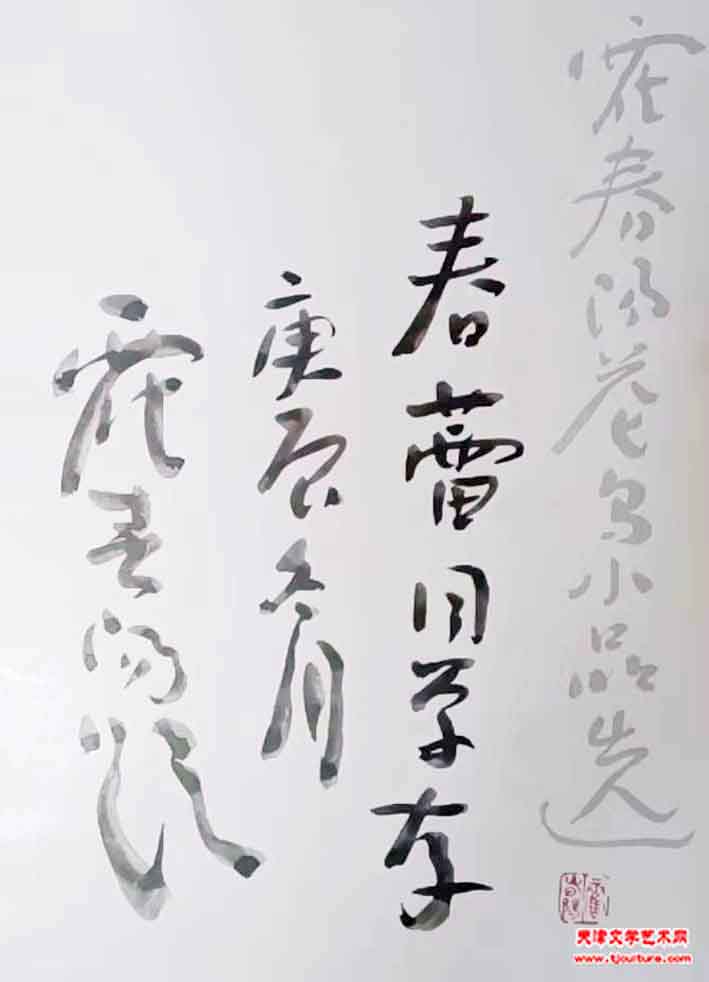 霍春阳花鸟小品选
春蕾同学存
庚辰冬月
霍春阳题
天津文学艺术网
www.tjculture.com